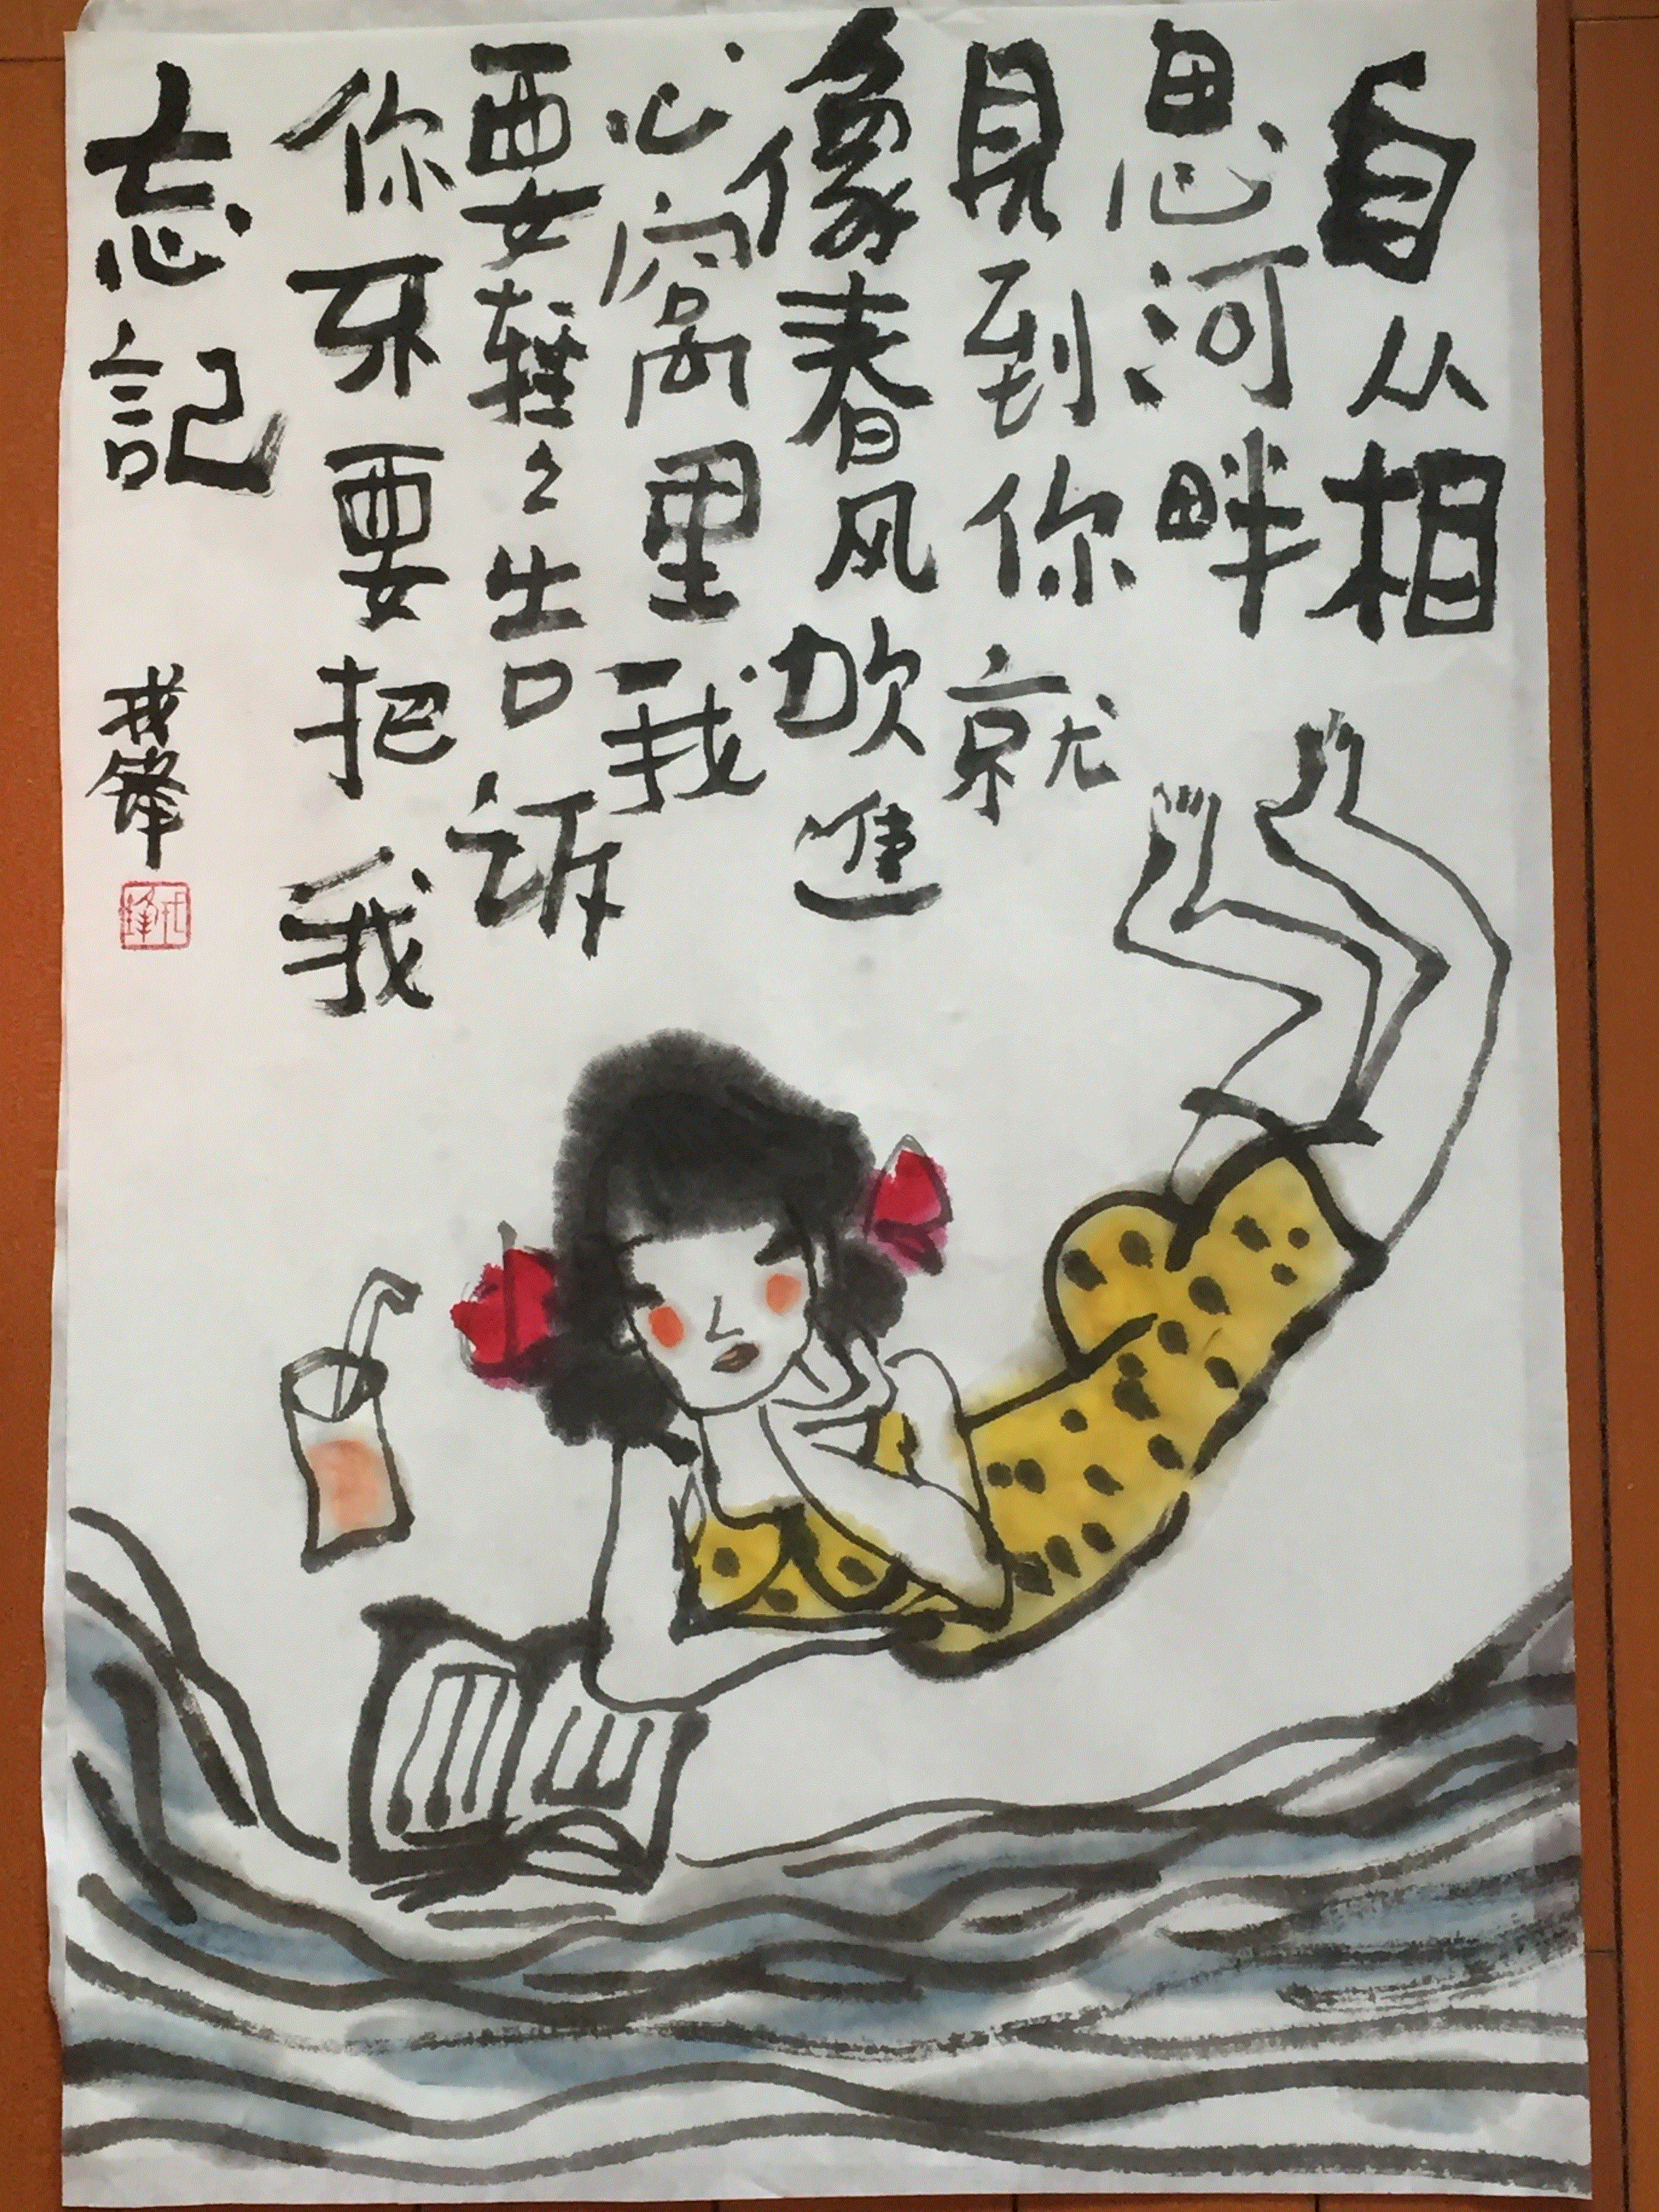 自从相
思河畔
見到你就
像春风吹進
心窩里我
要輕々告诉
你不要把我
忘記
戎鋒